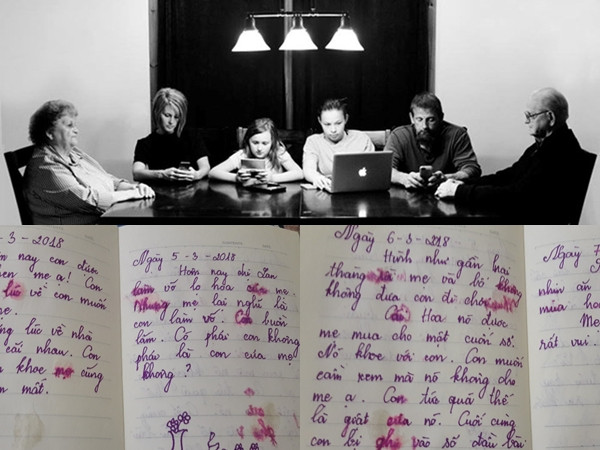 -3-2018
nay con điểm
xem mẹ ạ! Con
tức về con muốn
lúc về nhà
cãi nhau. Con
khoe mẹ cũng
mất.
Ngày 5-3-2018
Hôm nay chị Lan
làm vỡ lọ hoa của mẹ.
Nhưng mẹ lại nghĩ là
con làm vỡ. Con buồn
lắm. Có phải con không
phải là con của mẹ
không ?
Ngày 6-3-2018
Hình như gần hai
tháng rồi mẹ và bố
không đưa con đi chơi
Cái Hoa nó được
mẹ mua cho một cuốn sổ.
Nó khoe với con. Con muốn
cầm xem mà nó không cho
mẹ ạ. Con tức quá thế
là giật của nó. Cuối cùng
con bị ghi vào sổ đầu bài
Ngày 7
nhìn
mua
Mẹ
rất vui.